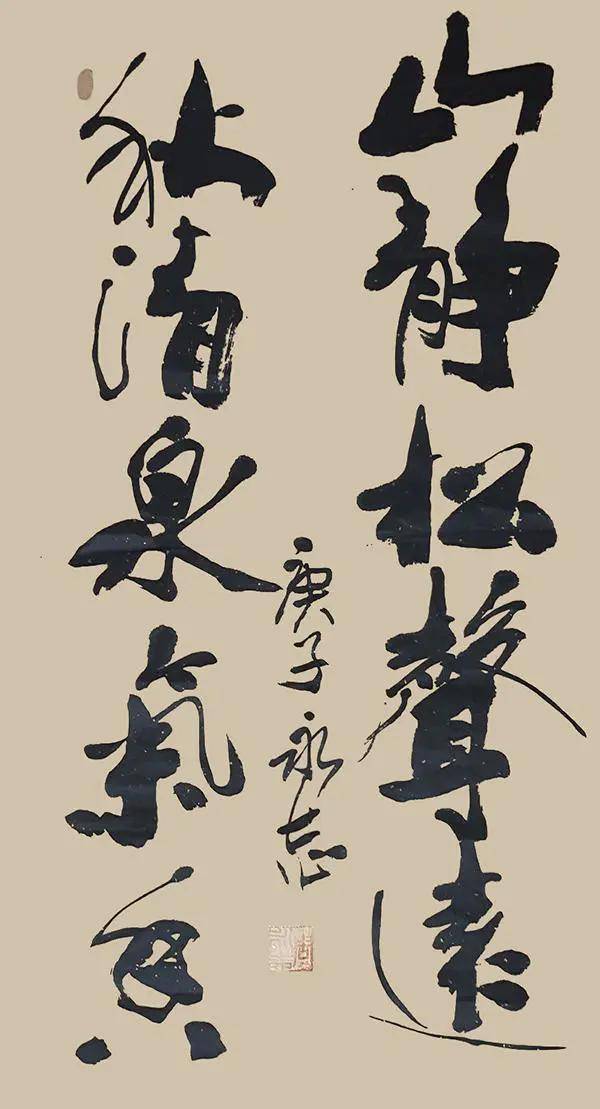 山静松聲遠
秋清泉氣香
庚子永志